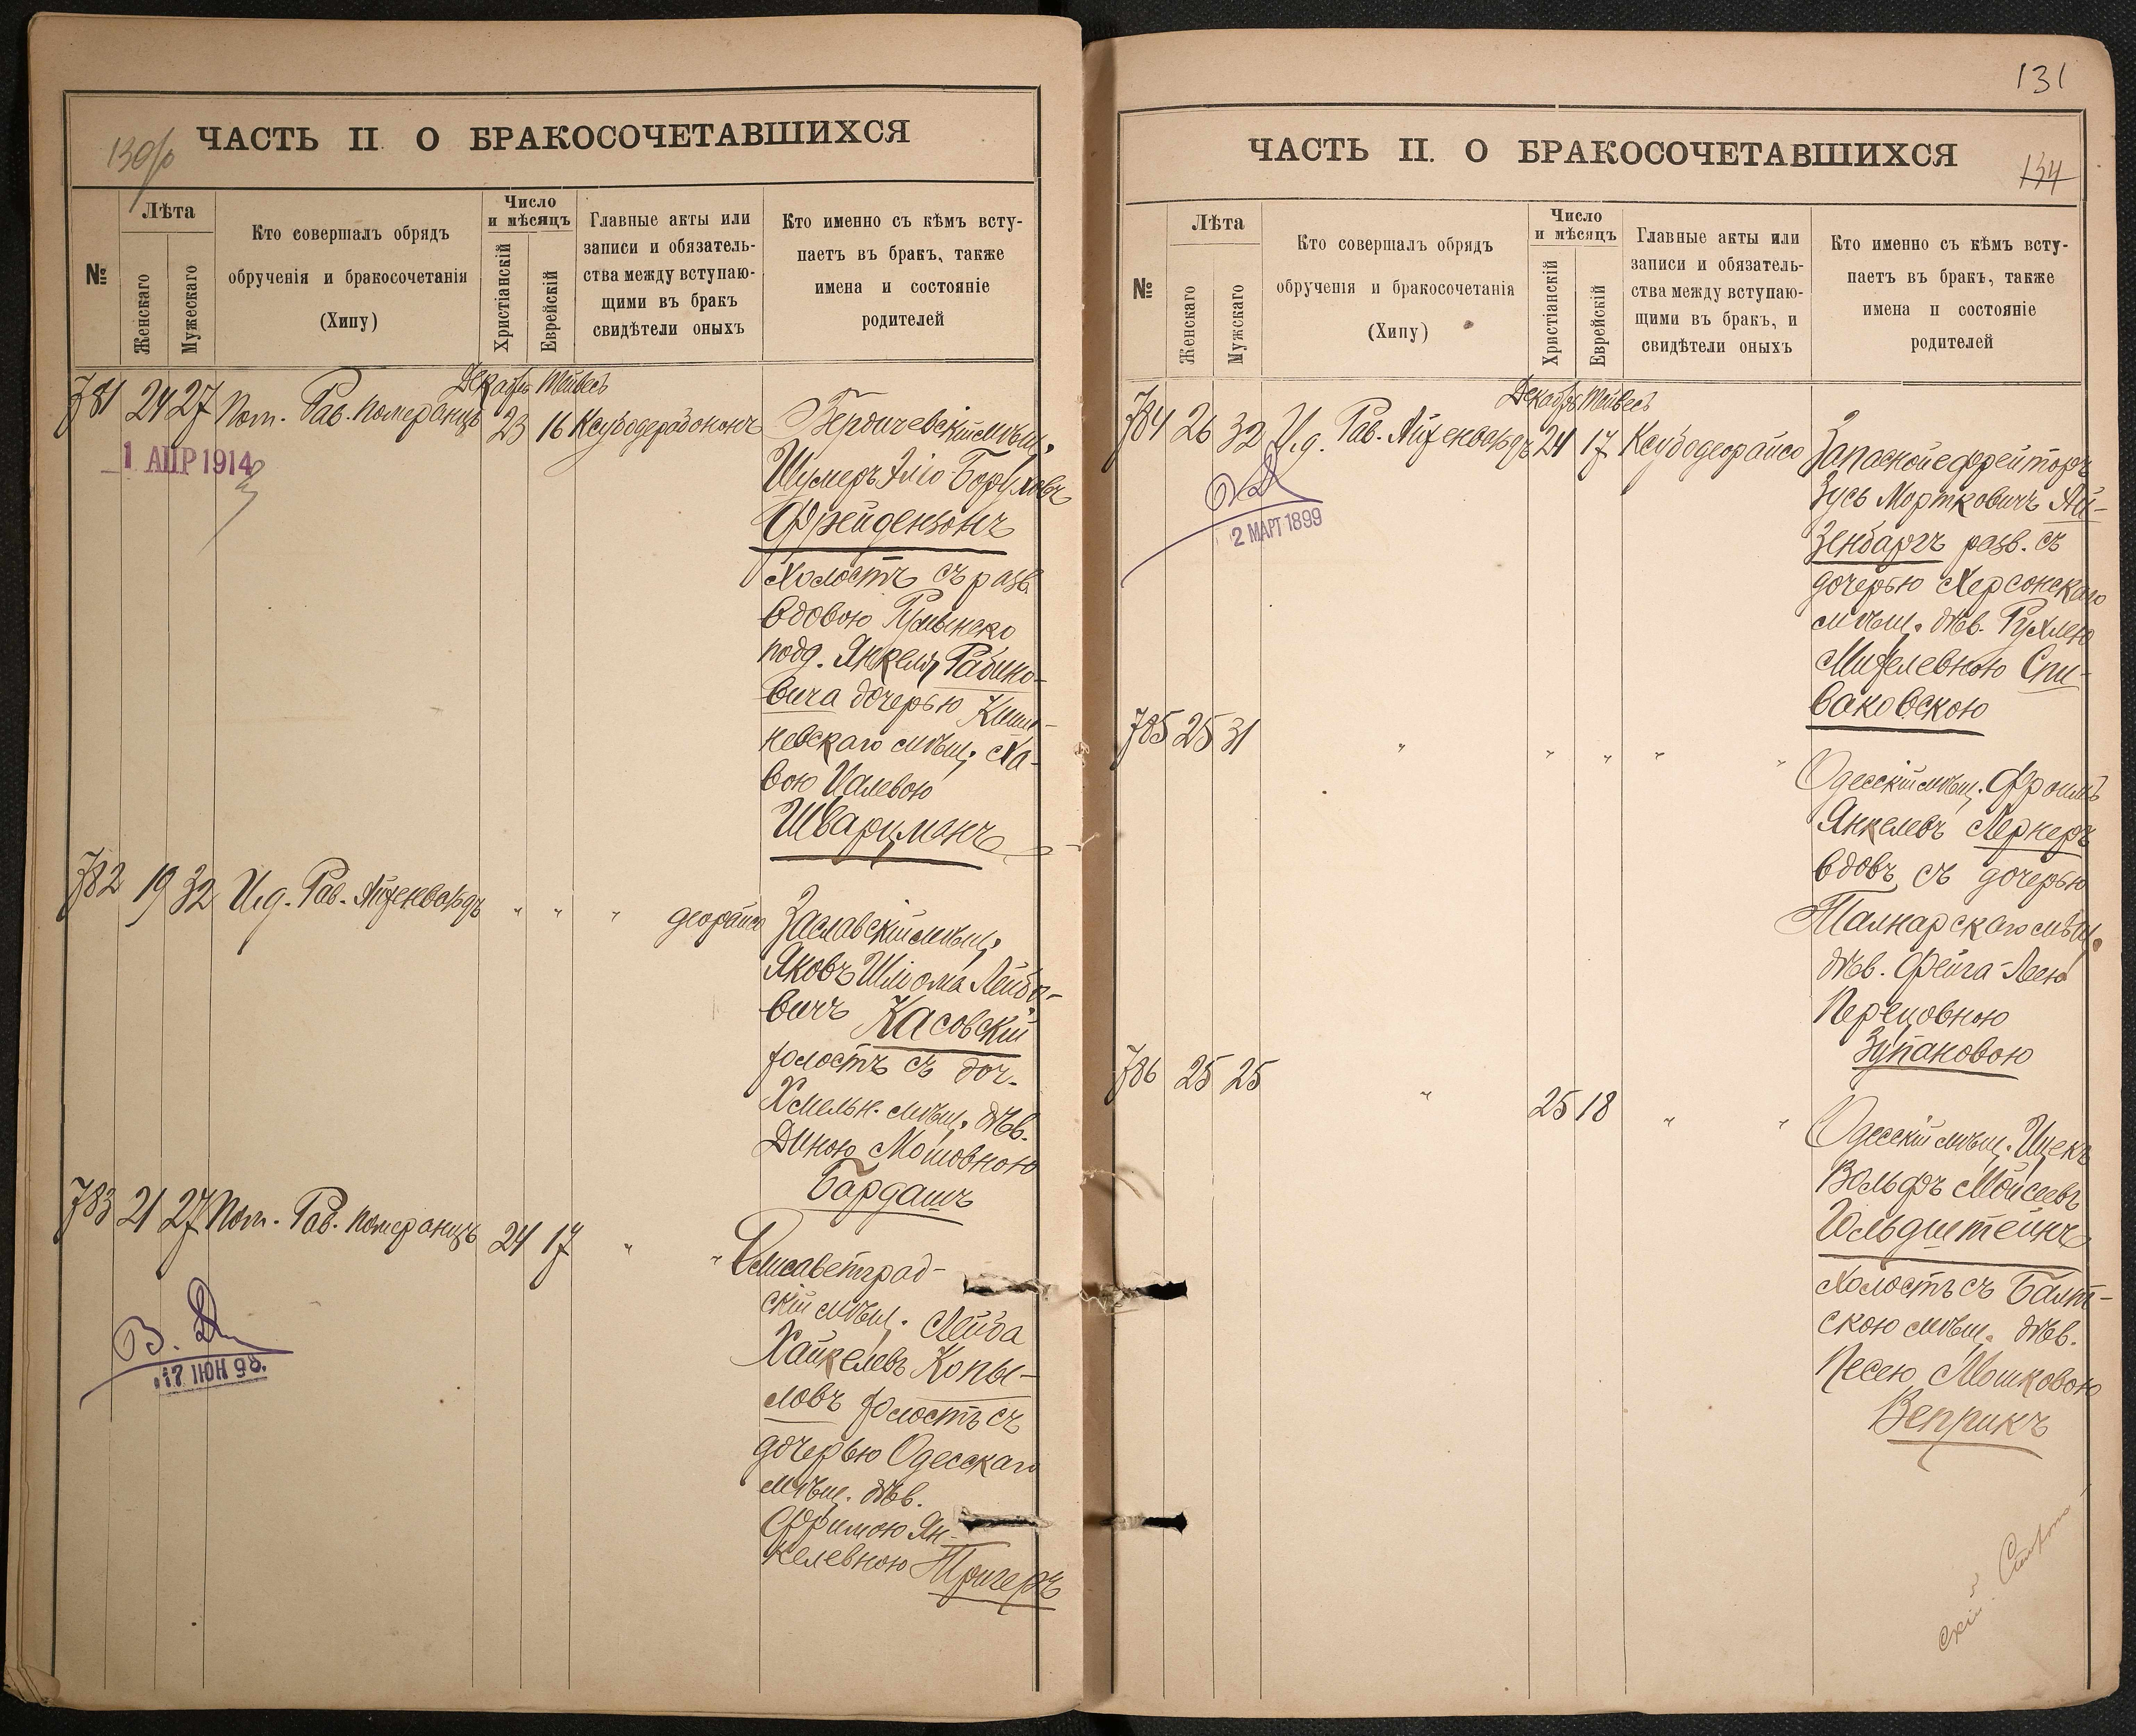 130/об
ЧАСТЬ II О БРАКОСОЧЕТАВШИХСЯ
№
Лѣта
Женскаго
Мужескаго
Кто совершалъ обрядъ
обрученія и бракосочетанія
(Хипу)
Число
и мѣсяцъ
Христіанскій
Еврейскій
Главные акты или
записи и обязатель-
ства между вступаю-
щими въ бракъ
свидѣтели оныхъ
Кто именно съ кѣмъ всту-
паетъ въ бракъ, также
имена и состояніе
родителей
Декабрь Тейвесъ
781 24 27 Пом. Рав. Померанцъ 23 16
1 АПР 1914
Бердичевскій мѣщ.
Шумеръ Эліо Борухов
Фрейдензонъ
Холостъ съ разв.
вдовою Румынско
подд. Янкеля Рабино-
вича дочерью Киши-
невскаго мѣщ. Ха-
вою Цалевою
Шварцманъ
782 19 32 И.д. Рав. Айзенвардъ " " " деорайсо
Заславскій мѣщ.
Яковъ Шліома Лейбо-
вичъ Касовскій
холостъ съ доч.
Хмельн. мѣщ. дѣв.
Диною Мошовною
Бардашъ
783 21 27 Пом. Рав. Померанцъ 24 17 " "
В. Д.
17 ІЮН 98.
Елисаветград-
скій мѣщ. Лейба
Хайкелевъ Копы-
ловъ холостъ съ
дочерью Одесскаго
мѣщ. дѣв.
Фримою Ян-
келевною Тричеръ
131
ЧАСТЬ II. О БРАКОСОЧЕТАВШИХСЯ
134
№
Лѣта
Женскаго
Мужскаго
Кто совершалъ обрядъ
обрученія и бракосочетанія
(Хипу)
Число
и мѣсяцъ
Христіанскій
Еврейскій
Главные акты или
записи и обязатель-
ства между вступаю-
щими въ бракъ, и
свидѣтели оныхъ
Кто именно съ кѣмъ всту-
паетъ въ бракъ, также
имена и состояніе
родителей
Декабрь Тейвесъ
784 26 32 И.д. Рав. Айзенвардъ 24 17 Ксубодеорайсо
2 МАРТ 1899
Запасной ефрейторъ
Зусь Мортковичъ Ай-
зенбаргъ разв. съ
дочерью Херсонскаго
мѣщ. дѣв. Рухлею
Михелевною Спи-
ваковскою
785 25 31 " " " " "
Одесскій мѣщ. Фроимъ
Янкелевъ Лернеръ
вдовъ съ дочерью
мѣщ.
дѣв. Фейга-Леею
Перецовною
Зупановою
786 25 25 " 25 18 " "
Одесскій мѣщ. Ицекъ
Вольфъ Мойсеевъ
Гольдштейнъ
холостъ съ Балт-
скою мѣщ. дѣв.
Песею Мошковою
Веприкъ